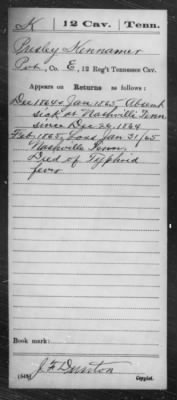 K | 12 Cav. | Tenn.
Presley Kennamer
Pvt., Co. E, 12 Reg't Tennessee Cav.
Appears on Returns as follows:
Dec 1864 & Jan 1865, Absent
sick at Nashville Tenn
since Dec 24, 1864
Feb. 1865, Loss Jan 31/65
Nashville Tenn.
Died of Typhoid
fever
Book mark:
(546)
Copyist.